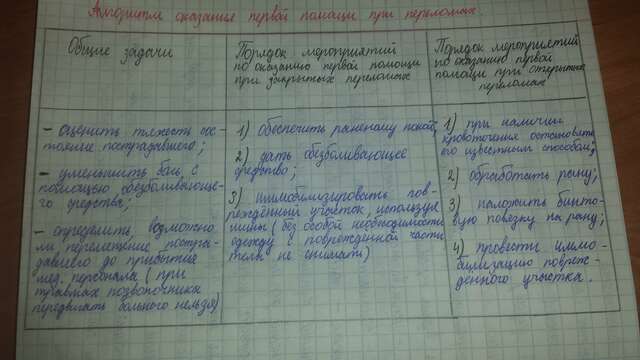 Алгоритм оказания первой помощи при переломах.
Общие задачи
- оценить тяжесть сос-
тояние пострадавшего;
- уменьшить боль с
помощью обезболивающе-
го средства;
- определить, возможно
ли перемещение постра-
давшего до прибытие
мед. персонала (при
травмах позвоночника
передвигать больного нельзя)
Порядок мероприятий
по оказанию первой помощи
при закрытых переломах
1) обеспечить раненому покой;
2) дать обезболивающее
средство;
3) иммобилизировать пов-
реждённый участок, используя
шины (без особой необходимости
одежду с повреждённой части
тела не снимать)
Порядок мероприятий
по оказанию первой
помощи при открытых
переломах
1) при наличии
кровотечения остановить
его известным способом;
2) обработать рану;
3) наложить бинто-
вую повязку на рану;
4) провести иммо-
билизацию повреж-
дённого участка.